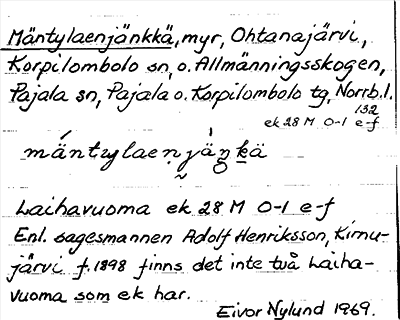 Mäntylaenjänkkä, myr, Ohtanajärvi,
Korpilombolo sn, o. Allmänningsskogen,
Pajala sn, Pajala o. Korpilombolo tg, Norrb. l.
132
ek 28 M 0-1 e-f
mántylaeṇ jàŋḵä
Laihavuoma ek 28 M 0-1 e-f
Enl. sagesmannen Adolf Henriksson, Kirnu-
järvi f. 1898 finns det inte två Laiha-
vuoma som ek har.
Eivor Nylund 1969.